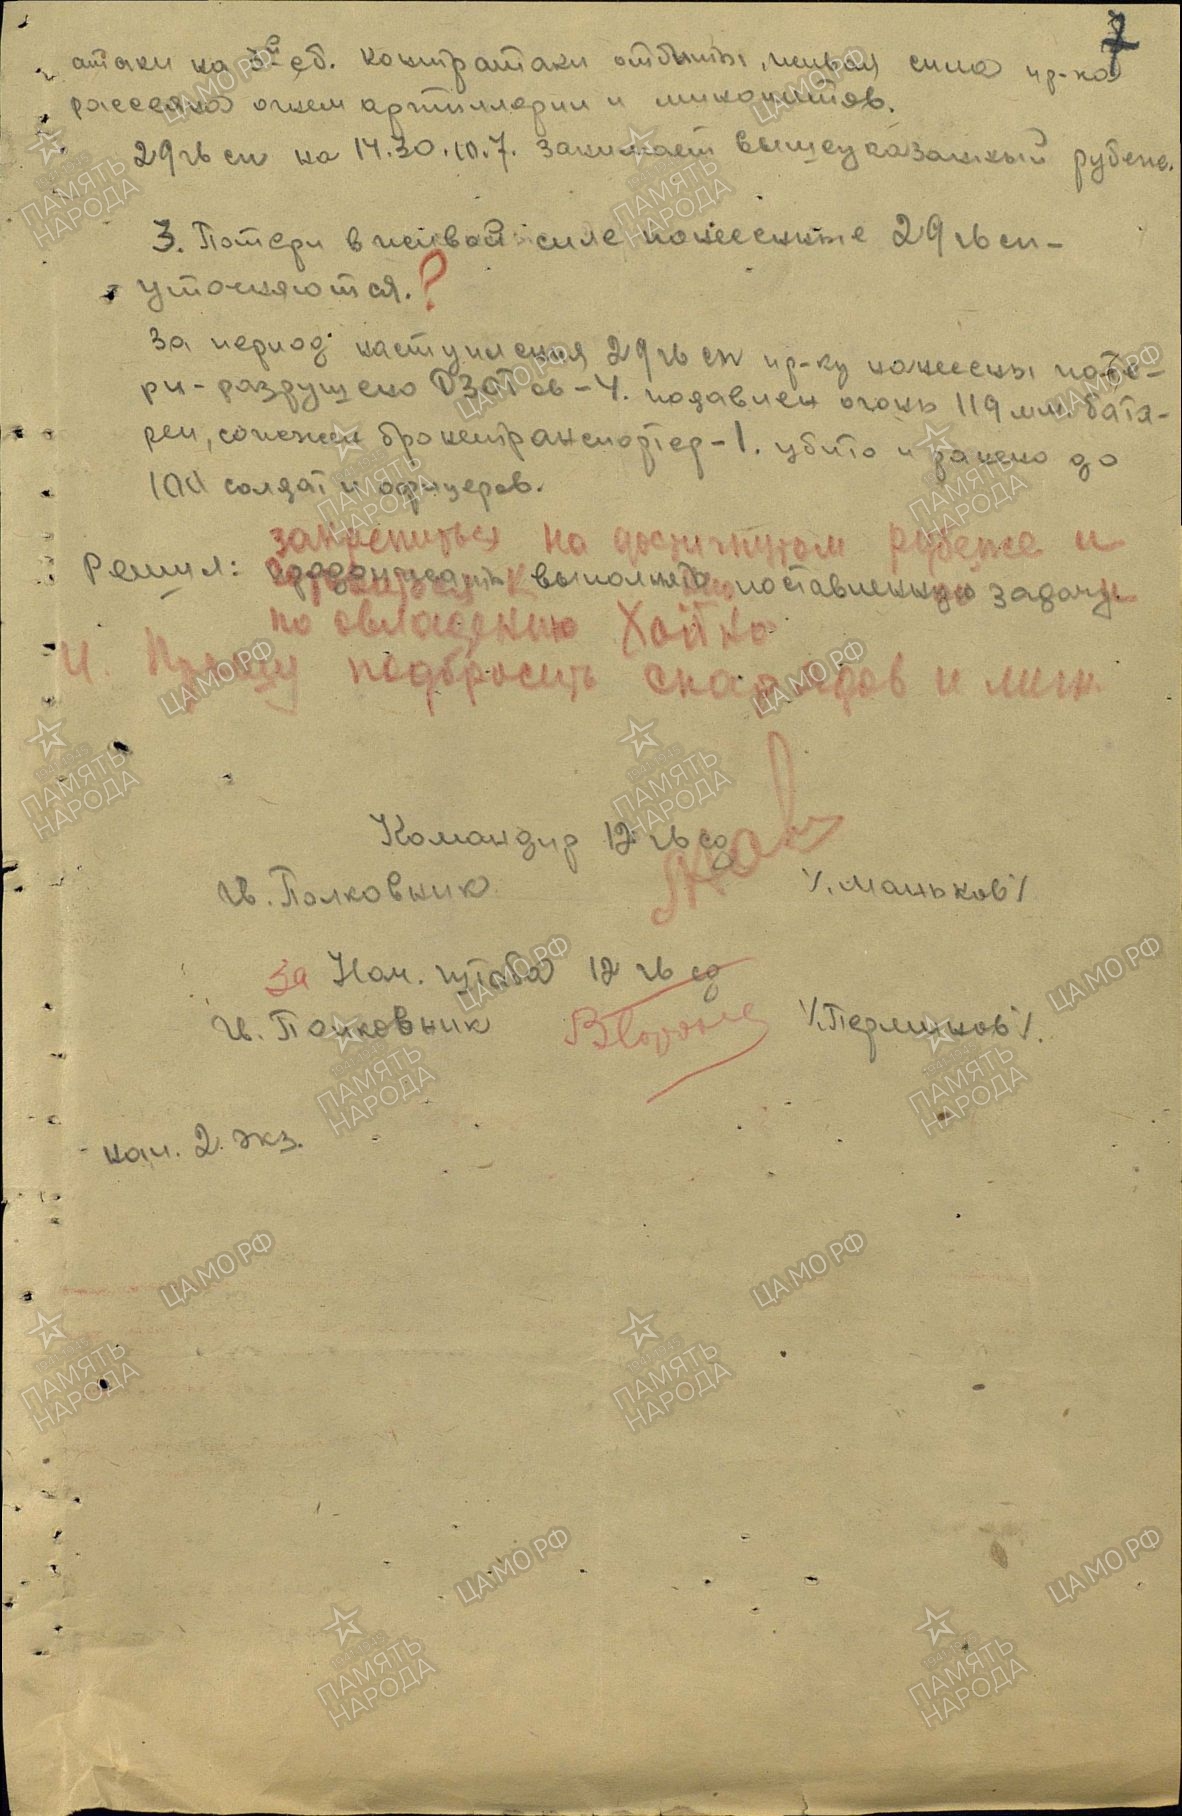 7
атаки на 3й сб. контратаки отбиты, живая сила пр-ка
рассеяна огнем артиллерии и минометов.
29 гв сп на 14.30. 10.7. занимает вышеуказанный рубеж.
3. Потери в живой силе понесенные 29 гв сп -
уточняются. ?
За период наступления 29 гв сп пр-ку нанесены поте-
ри - разрушено ДЗОТов - 4. подавлен огонь 119 мин. батa-
реи, сожжен бронетранспортер - 1. убито и ранено до
100 солдат и офицеров.
закрепиться на достигнутом рубеже и
Решил: выполнять поставленную задачу
по овладению
4. Прошу подбросить снарядов и мин.
Командир 12 гв сд
Гв. Полковник /Маньков/
За Нач. штаба 12 гв сд
Гв. Полковник /Перминов/.
нап. 2. экз.
ЦАМО РФ
ПАМЯТЬ
НАРОДА